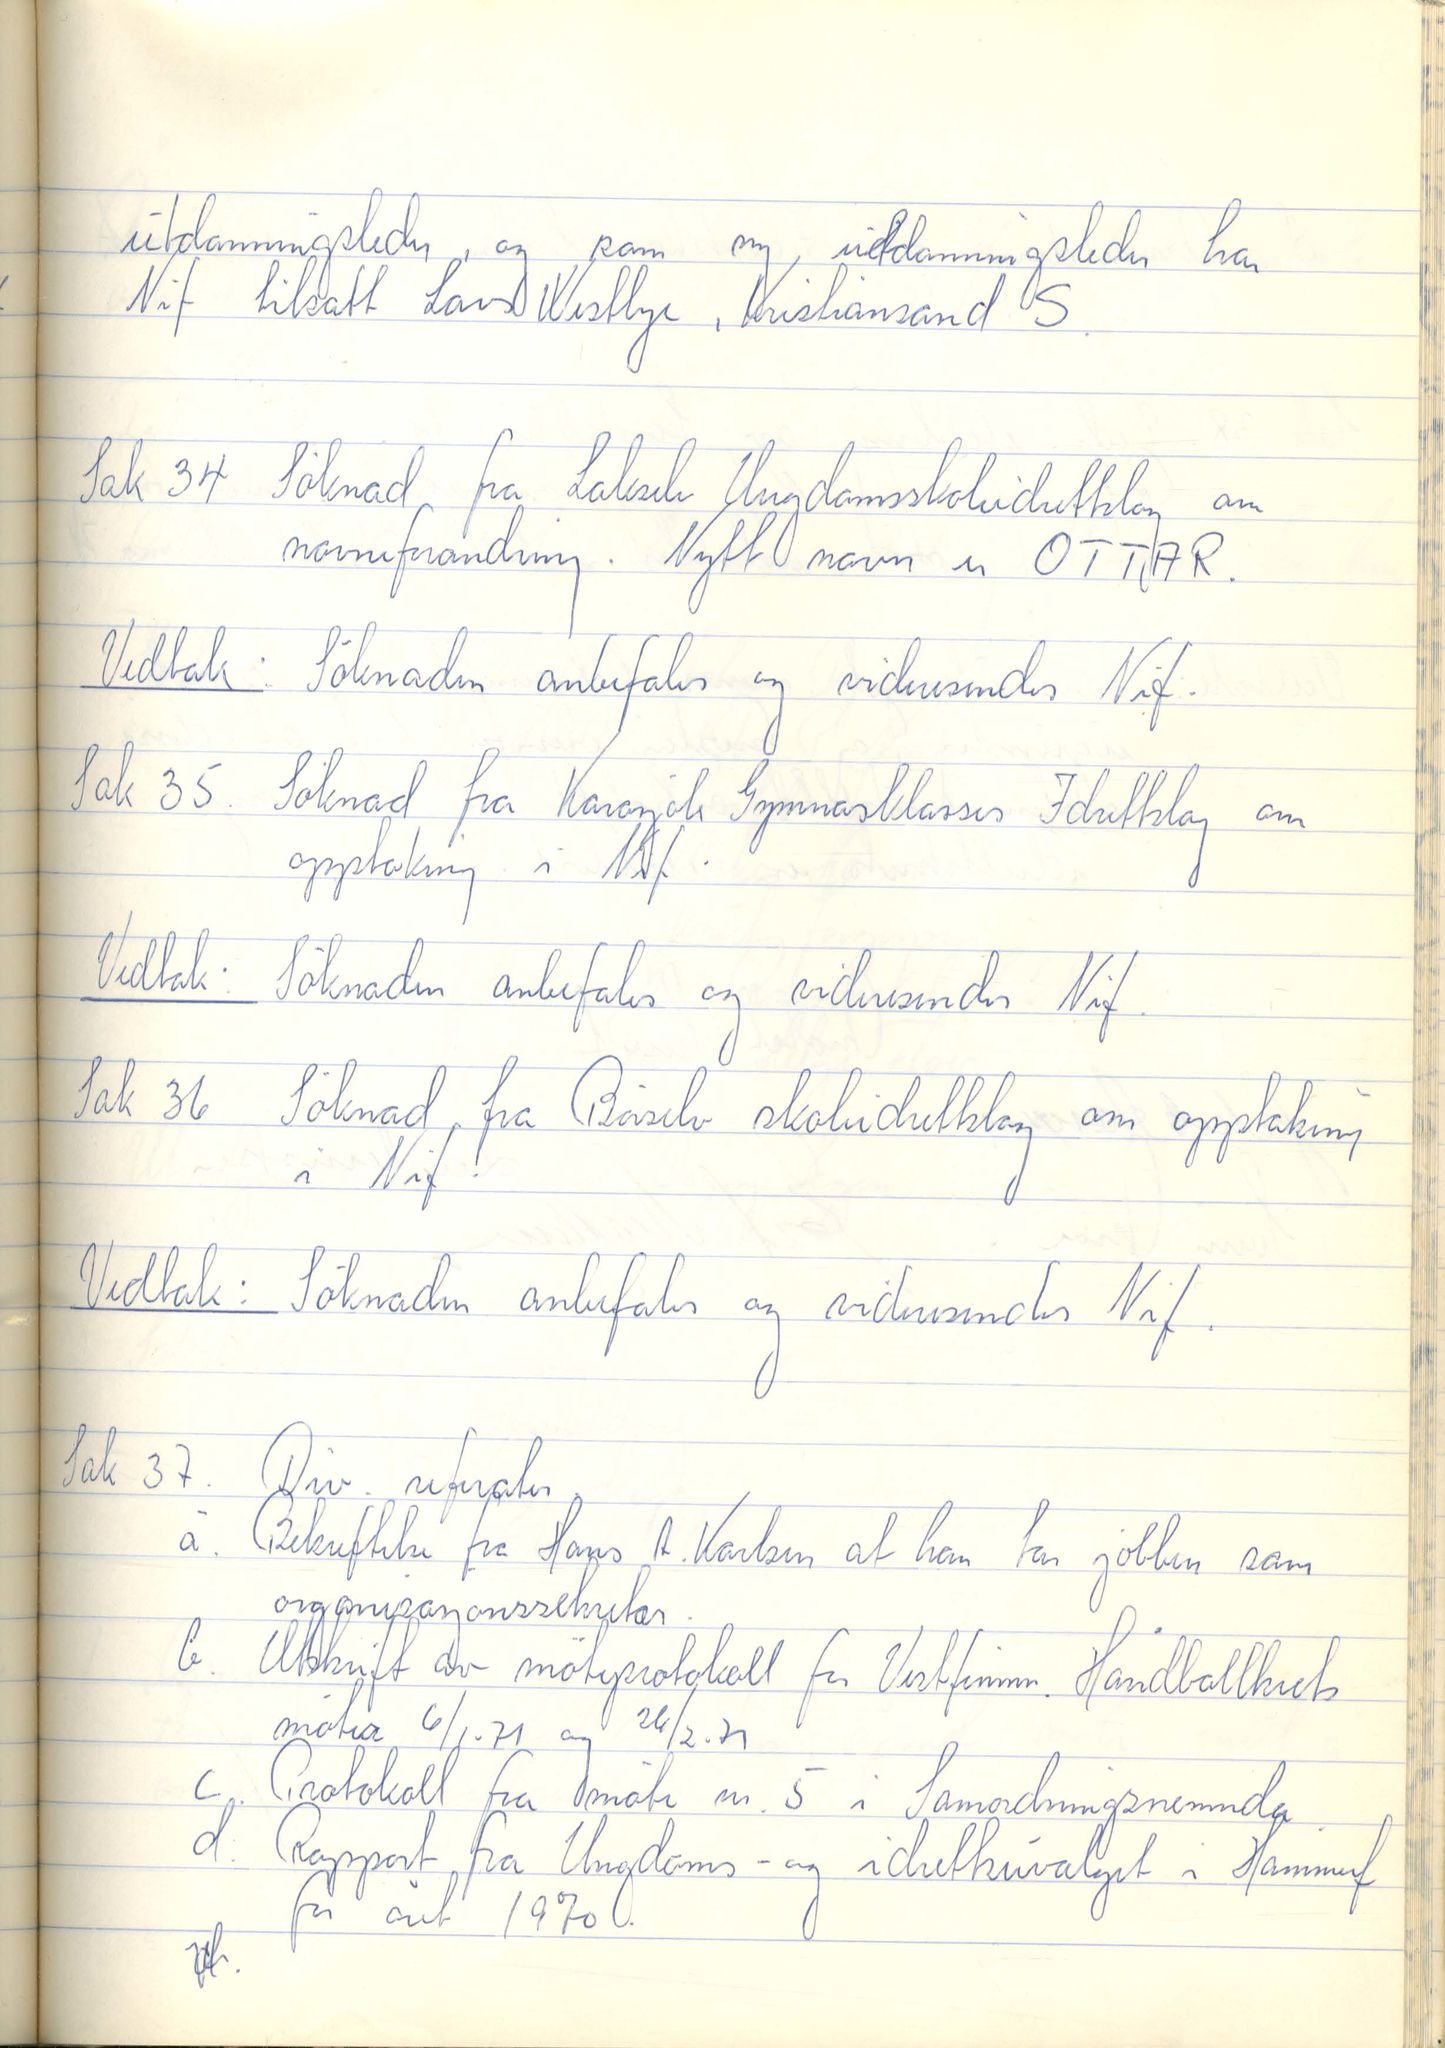 utdanningsleder, og som ny utdanningsleder har
Nif tilsatt Lars Westbye, Kristiansand S.
Sak 34 Söknad fra Lakselv Ungdomsskoleidrettslag om
navneforandring. Nytt navn er OTTAR.
Vedtak: Söknaden anbefales og videresendes Nif.
Sak 35. Söknad fra Karasjok Gymnasklasses Idrettslag om
opptaking i Nif.
Vedtak: Söknaden anbefales og videresendes Nif.
Sak 36 Söknad fra Börselv skoleidrettslag om opptaking
i Nif.
Vedtak: Söknaden anbefales og videresendes Nif.
Sak 37. Div. referater.
a. Bekreftelse fra Hans A. Karlsen at han tar jobben som
organisasjonssekretær.
b. Utskrift av möteprotokoll for Vestfinnm. Handballkrets
möter 6/1.71 og 26/2.71
c. Protokoll fra möte nr. 5 i Samordningsnemnda
d. Rapport fra Ungdoms- og idrettsutvalget i Hammerf
for året 1970.